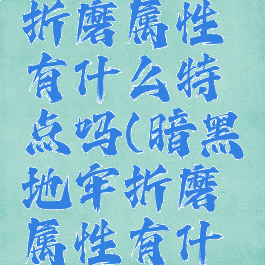 折磨属性
有什么特
点吗(暗黑
地牢折磨
属性有什